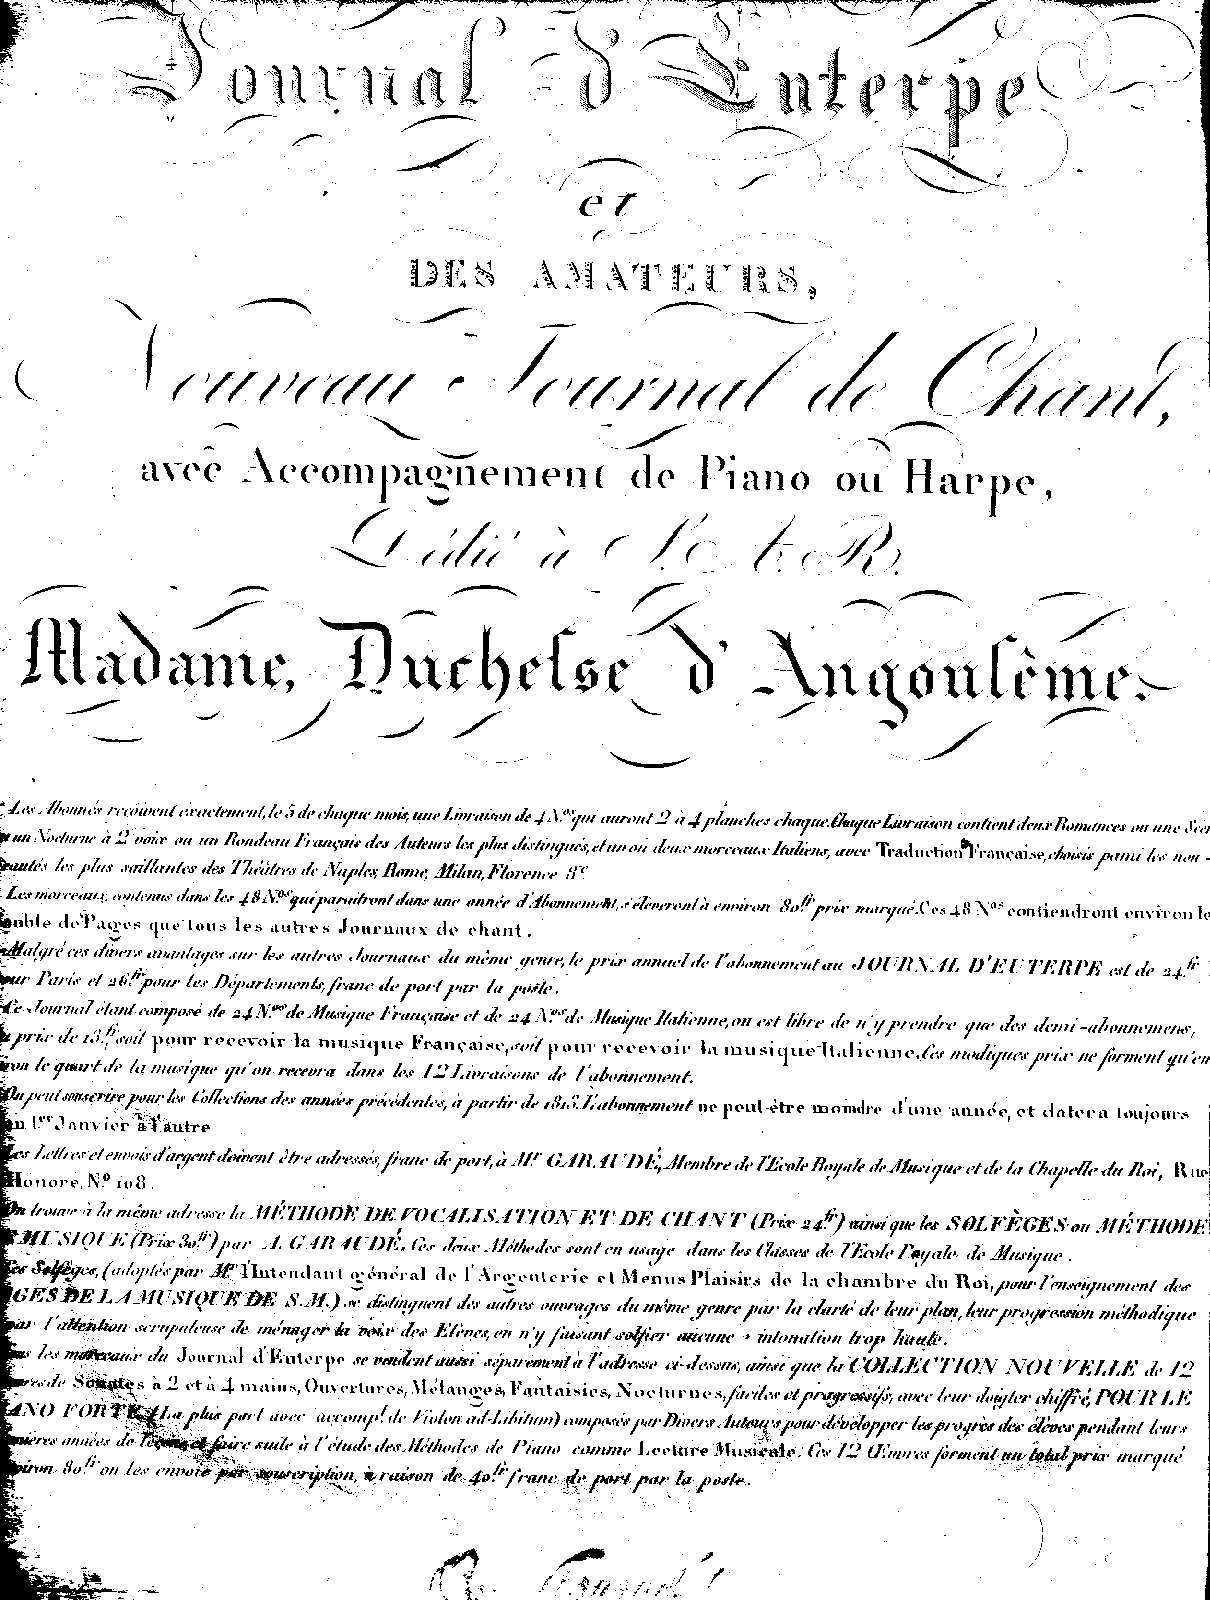 Journal d'Euterpe
et
DES AMATEURS,
Nouveau Journal de Chant,
avec Accompagnement de Piano ou Harpe,
Dédié à S. A. R.
Madame, Duchesse d'Angoulême.
Les Abonnés reçoivent exactement, le 5 de chaque mois, une Livraison de 4 Nos qui auront 2 à 4 planches chaque. Chaque Livraison contient deux Romances ou une Scè
un Nocturne à 2 voix ou un Rondeau Français des Auteurs les plus distingués, et un ou deux morceaux Italiens, avec Traduction Française, choisis parmi les nou-
eautés les plus saillantes des Théâtres de Naples, Rome, Milan, Florence &c
Les morceaux contenus dans les 48 Nos qui paraitront dans une année d'Abonnement, s'élèveront à environ 80ff prix marqué. Ces 48 Nos contiendront environ le
ouble de Pages que tous les autres Journaux de chant.
Malgré ces divers avantages sur les autres Journaux du même genre, le prix annuel de l'abonnement au JOURNAL D'EUTERPE est de 24ff
our Paris et 26ff pour les Départements, franc de port par la poste.
Ce Journal étant composé de 24 Nos de Musique Française et de 24 Nos de Musique Italienne, on est libre de n'y prendre que des demi-abonnemens,
u prix de 13ff soit pour recevoir la musique Française, soit pour recevoir la musique Italienne. Ces modiques prix ne forment qu'en
iron le quart de la musique qu'on recevra dans les 12 Livraisons de l'abonnement.
On peut souscrire pour les Collections des années précédentes, à partir de 1813. L'abonnement ne peut être moindre d'une année, et datera toujours
un 1er Janvier à l'autre
Les Lettres et envois d'argent doivent être adressés, franc de port, à Mr GARAUDÉ, Membre de l'Ecole Royale de Musique et de la Chapelle du Roi, Rue
Honoré, No 108.
On trouve à la même adresse la MÉTHODE DE VOCALISATION ET DE CHANT (Prix 24ff) ainsi que les SOLFÈGES ou MÉTHODE
E MUSIQUE (Prix 30ff) par A. GARAUDÉ. Ces deux Méthodes sont en usage dans les Classes de l'Ecole Royale de Musique.
Ces Solfèges, (adoptés par Mr l'Intendant général de l'Argenterie et Menus Plaisirs de la chambre du Roi, pour l'enseignement des
GES DE LA MUSIQUE DE S.M.) se distinguent des autres ouvrages du même genre par la clarté de leur plan, leur progression méthodique
par l'attention scrupuleuse de ménager la voix des Elèves, en n'y faisant solfier aucune intonation trop haute.
us les morceaux du Journal d'Euterpe se vendent aussi séparément à l'adresse ci-dessus, ainsi que la COLLECTION NOUVELLE de 12
vres de Sonates à 2 et à 4 mains, Ouvertures, Mélanges, Fantaisies, Nocturnes, faciles et progressifs, avec leur doigter chiffré, POUR LE
ANO FORTE (La plus part avec accompt de Violon ad-Libitum) composés par Divers Auteurs pour développer les progrès des élèves pendant leurs
mières années de leçons, et faire suite à l'étude des Méthodes de Piano comme Lecture Musicale. Ces 12 Œuvres forment un total prix marqué
nviron 80ff on les envoie par souscription, à raison de 40ff franc de port par la poste.